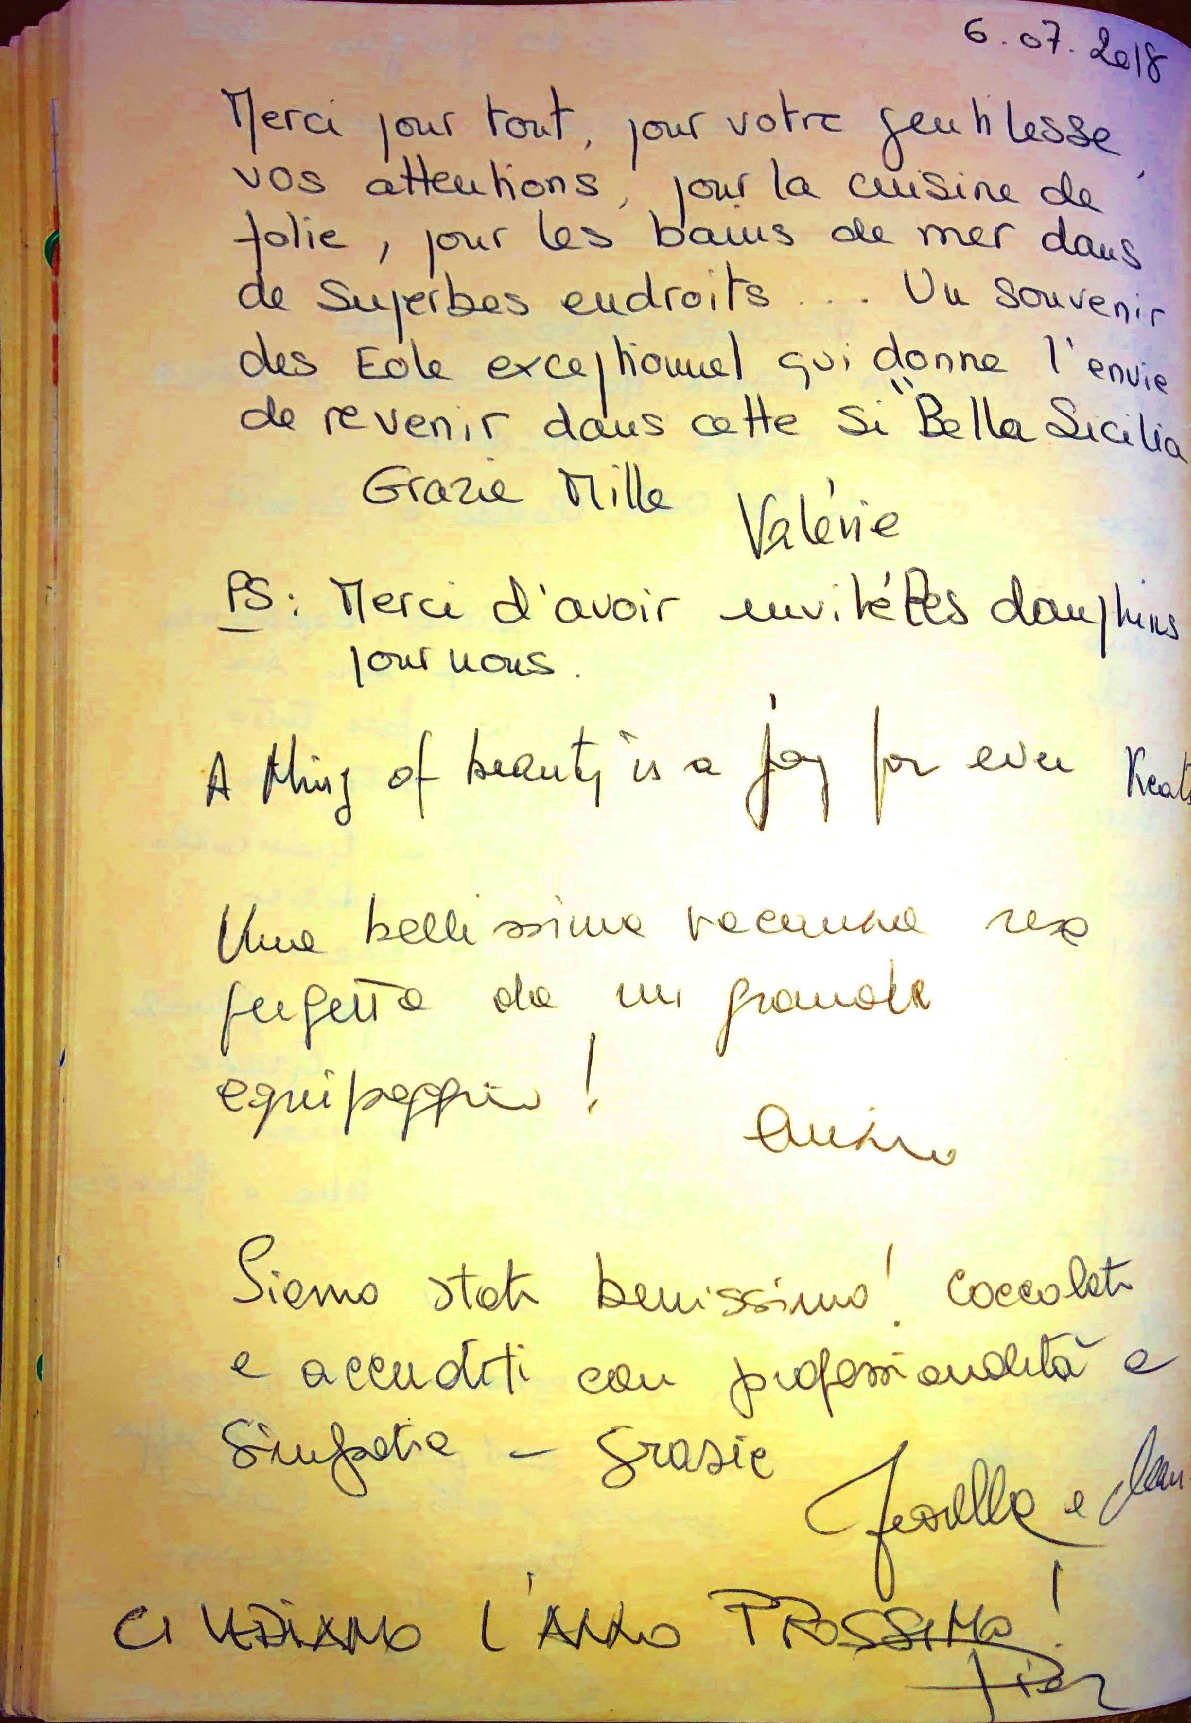 6.07.2018
Merci pour tout, pour votre gentillesse,
vos attentions, pour la cuisine de
folie, pour les bains de mer dans
de superbes endroits ... Un souvenir
des Eole exceptionnel qui donne l'envie
de revenir dans cette si "Bella Sicilia
Grazie Mille
Valérie
PS: Merci d'avoir invité les dauphins
pour nous.
A thing of beauty is a joy for ever Keats
Una bellissima vacanza resa
perfetta da un grande
equipaggio!
Siamo stati benissimo! Coccolati
e accuditi con professionalità e
simpatia - Grazie
e
CI VEDIAMO L'ANNO PROSSIMO!
Pier